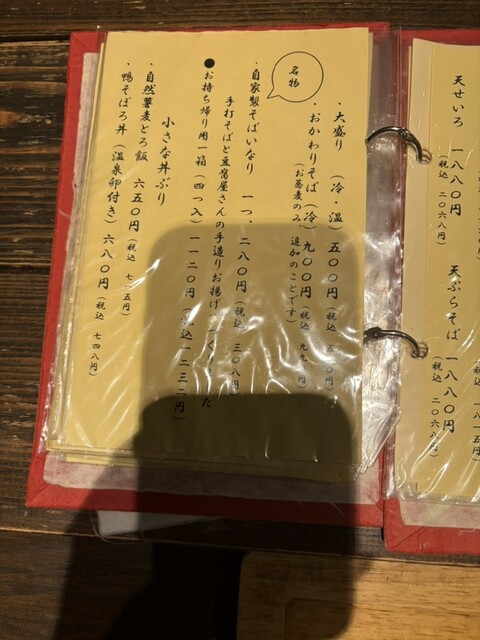 天せいろ　一八八〇円
（税込　二〇六八円）
天ぷらそば　一八八〇円
（税込　二〇六八円）
・大盛り　（冷・温）　五〇〇円（税込　五
・おかわりそば（冷）九〇〇円（税込　九九〇円）
（お蕎麦のみ、追加のことです）
名物
・自家製そばいなり　一つ、二八〇円（税込　三〇八円）
手打そばと豆腐屋さんの手造りお揚げ
●お持ち帰り用一箱（四つ入）一一二〇円（税込一二三二円）
小さな丼ぶり
・自然薯麦とろ飯　六五〇円（税込　七一五円）
・鴨そぼろ丼（温泉卵付き）六八〇円（税込　七四八円）